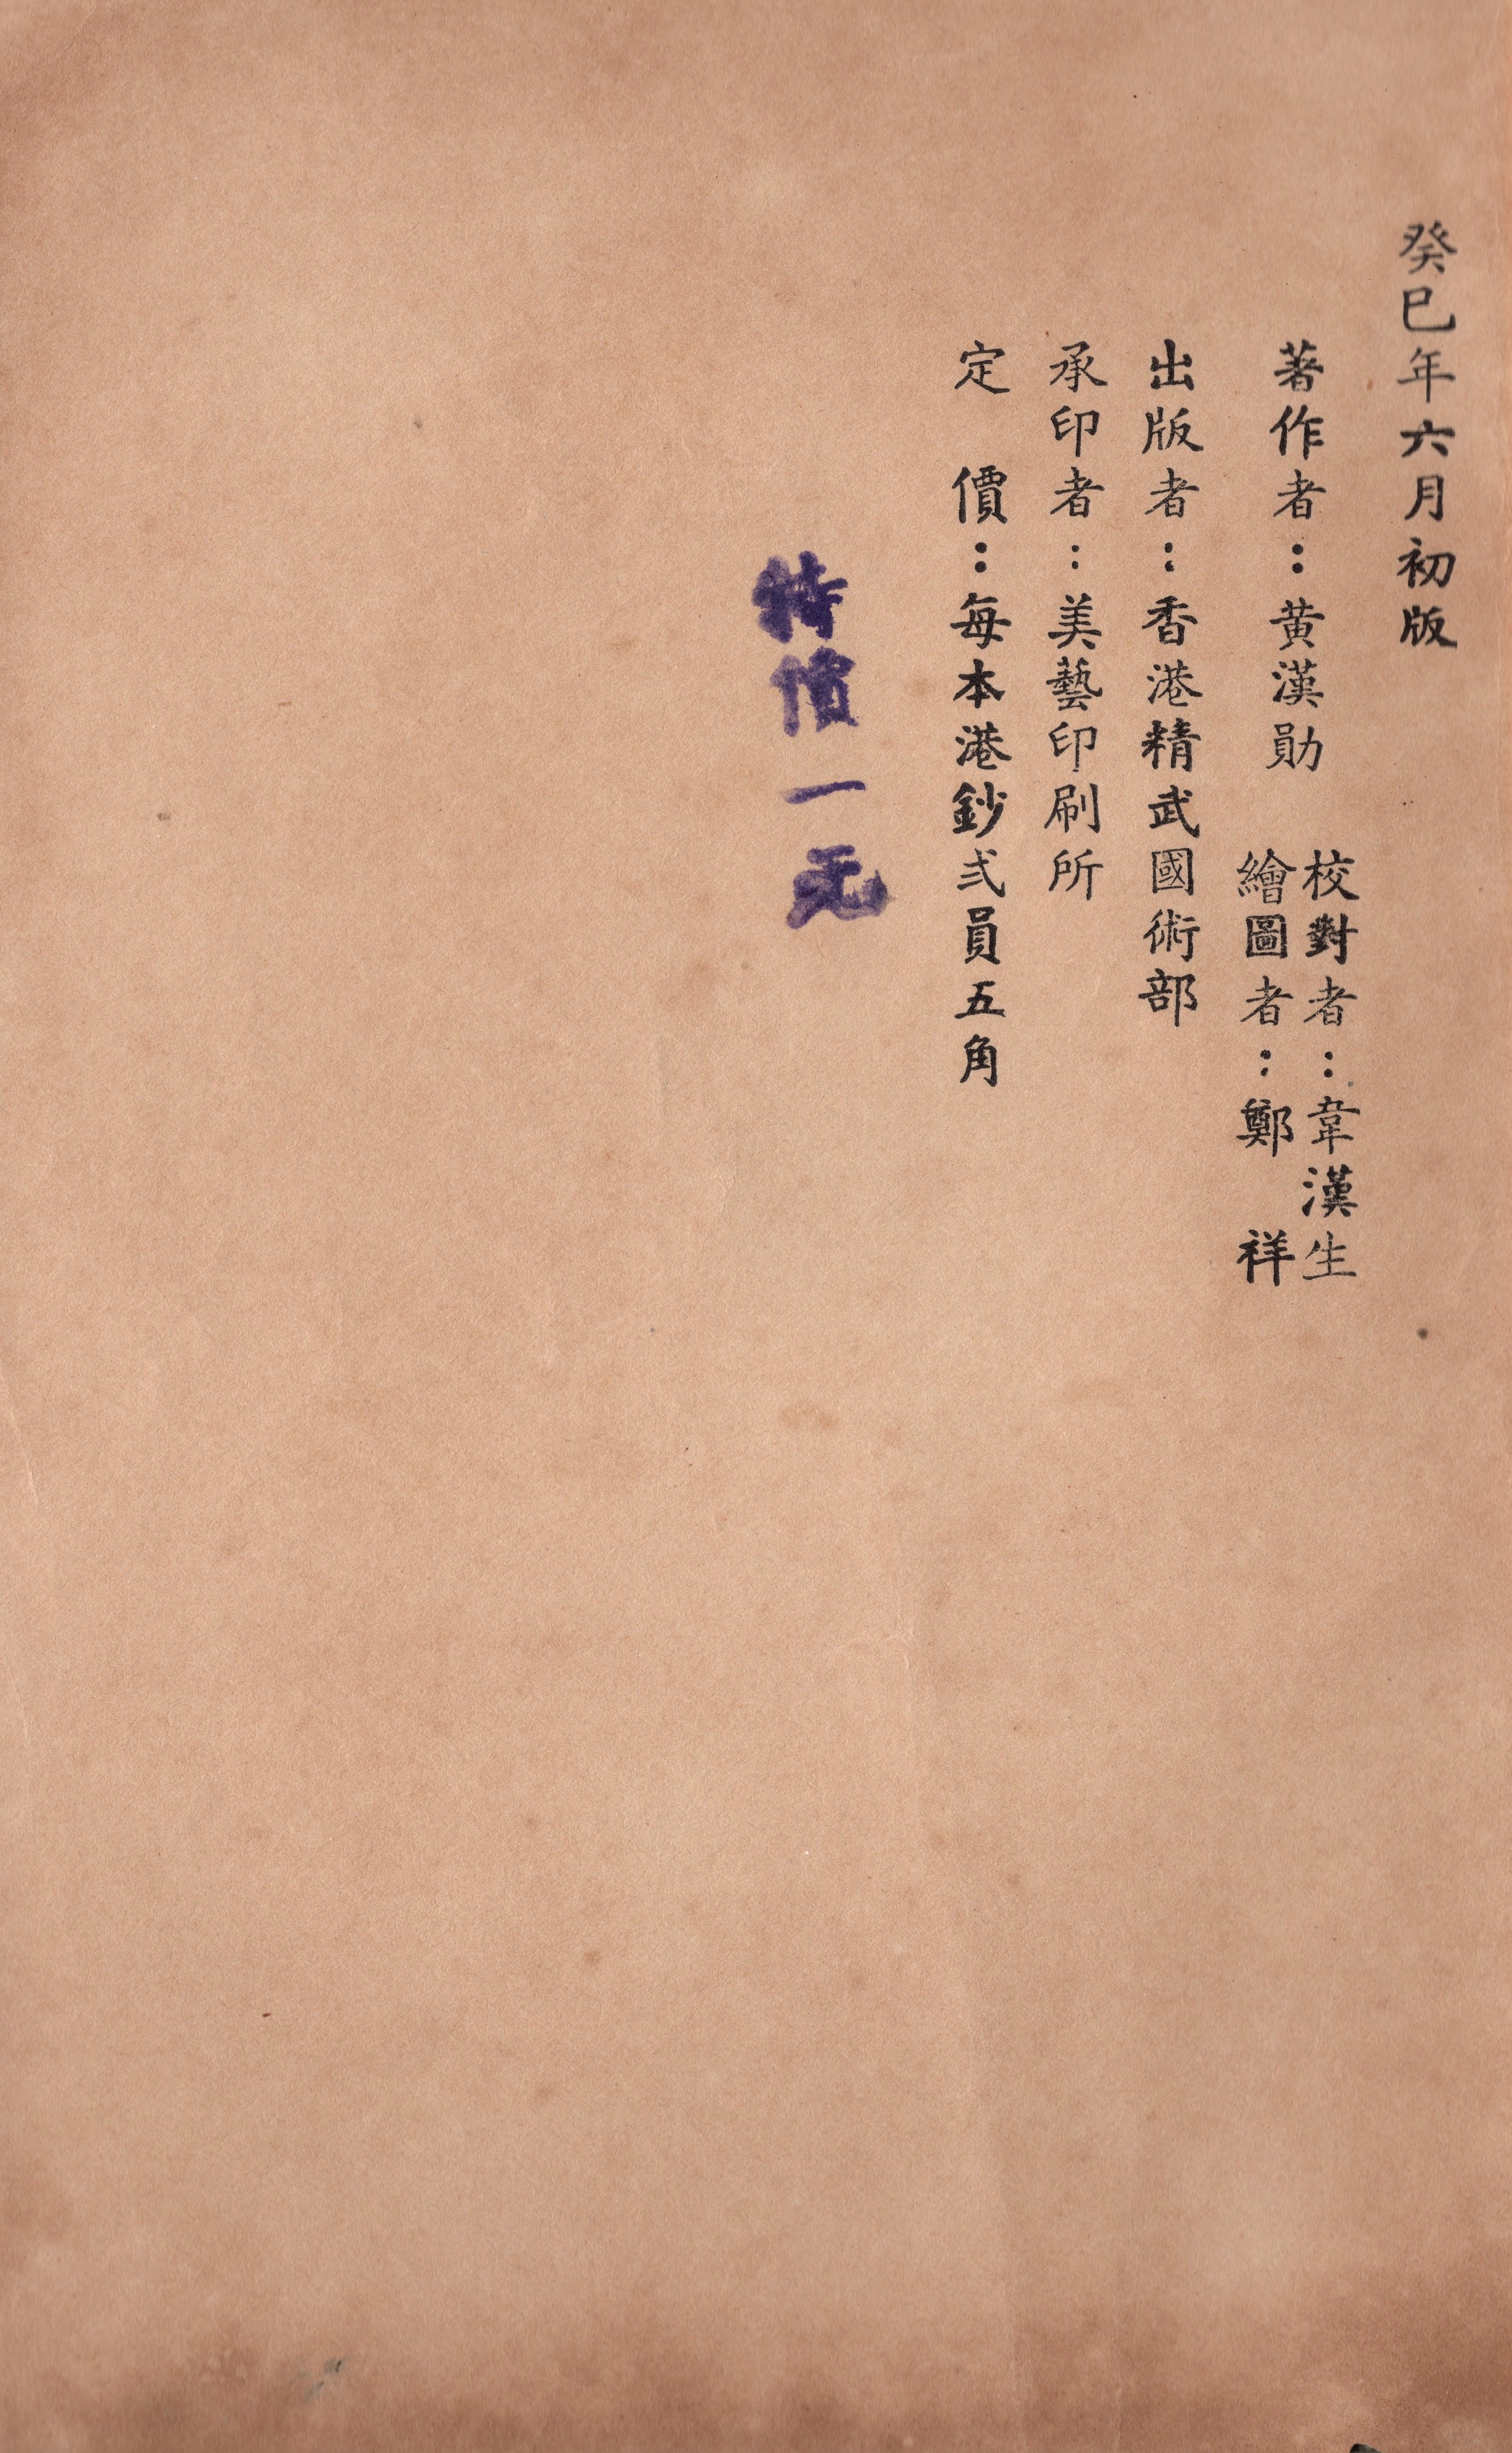 癸巳年六月初版
著作者：黄漢勛
校對者：韋漢生
繪圖者：鄭　祥
出版者：香港精武國術部
承印者：美藝印刷所
定　價：每本港鈔弍員五角
特價一元